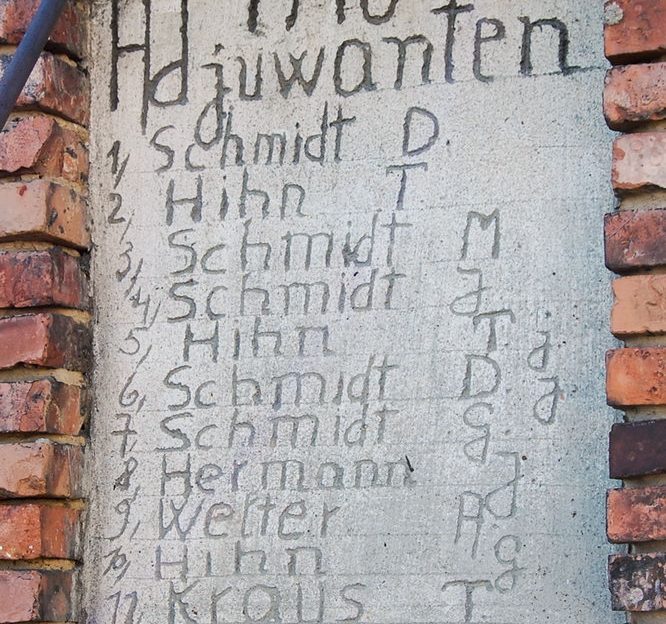 Adjuwanten
1, Schmidt D.
2, Hihn T
3, Schmidt M
4, Schmidt J
5, Hihn T j
6, Schmidt D. J
7, Schmidt G.
8 Hermann J
9, Welter A.
10, Hihn g
11, Kraus T